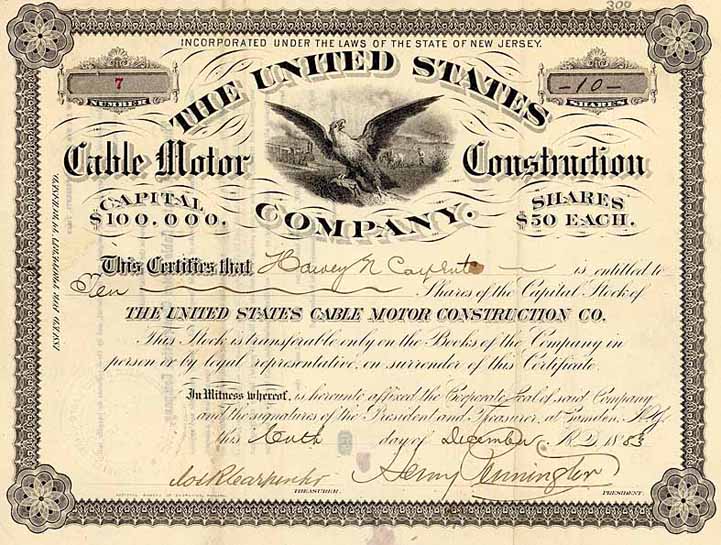 300
INCORPORATED UNDER THE LAWS OF THE STATE OF NEW JERSEY.
7
NUMBER
-10-
SHARES
THE UNITED STATES
Cable Motor Construction
COMPANY.
CAPITAL
$100,000.
SHARES
$50 EACH.
This Certifies that Harvey N Carpenter is entitled to
Ten Shares of the Capital Stock of
THE UNITED STATES CABLE MOTOR CONSTRUCTION CO.
This Stock is transferable only on the Books of the Company in
person or by legal representative, on surrender of this Certificate.
In Witness whereof, is hereunto affixed the Corporate Seal of said Company
and the signatures of the President and Treasurer, at Camden, N.J.
this day of December A.D. 1883
Jos R Carpenter
Henry Pennington
TREASURER.
PRESIDENT.